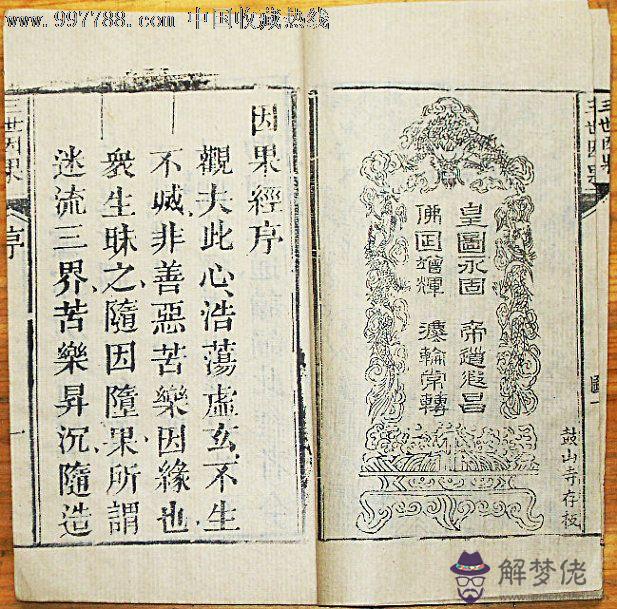 www.997788.com 中国收藏热线
三世因果
圖一
皇圖永固 帝道遐昌
佛日增輝 灋輪常轉
鼓山寺存板
因果經序
觀夫此心浩蕩虛玄不生
不滅非善惡苦樂因緣也
衆生昧之隨因墮果所謂
迷流三界苦樂昇沉隨造
三世因果
序
一
解梦佬